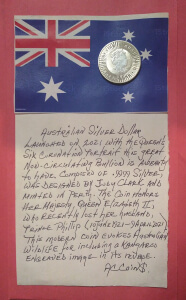 Australian Silver Dollar
Launched in 2021 with the Queen's
Six Circulation Portrait this great
Non-circulating Bullion is awesome
to have. Composed of .9999 Silver,
was designed by Jody Clark and
minted at Perth. The coin honors
Her Majesty, Queen Elizabeth II,
who recently lost her husband,
Prince Phillip (10June1921-9Apr2021)
This modern coin evokes Australian
Wildlife for including a Kangaroo
engraved image in its reverse.
ACCoin$.